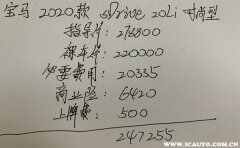 宝马 2020款 sDrive 20Li 时尚型
指导价: 276800
裸车价: 220000
必要费用: 20335
商业险: 6420
上牌费: 500
247255
WWW.5CAUTO.CN